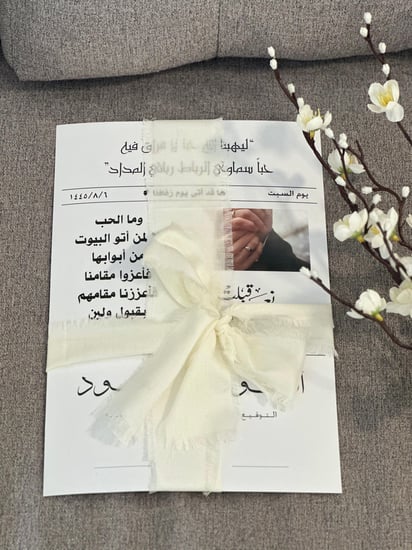 "ليهبنا الله حباً لا فراق فيه
حباً سماوي الرباط رباني المداد"
يوم السبت ها قد اتى يوم زفافنا ١٤٤٥/٨/٦
وما الحب
لمن أتو البيوت
من أبوابها
فأعزوا مقامنا
فأعززنا مقامهم
بقبول ولين
قبلت
التوقيع